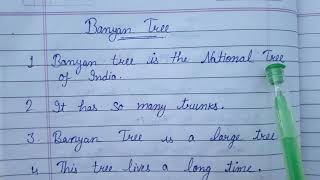 Banyan Tree
1 Banyan tree is the National Tree
of India.
2 It has so many trunks.
3. Banyan Tree is a large tree
4 This tree lives a long time.